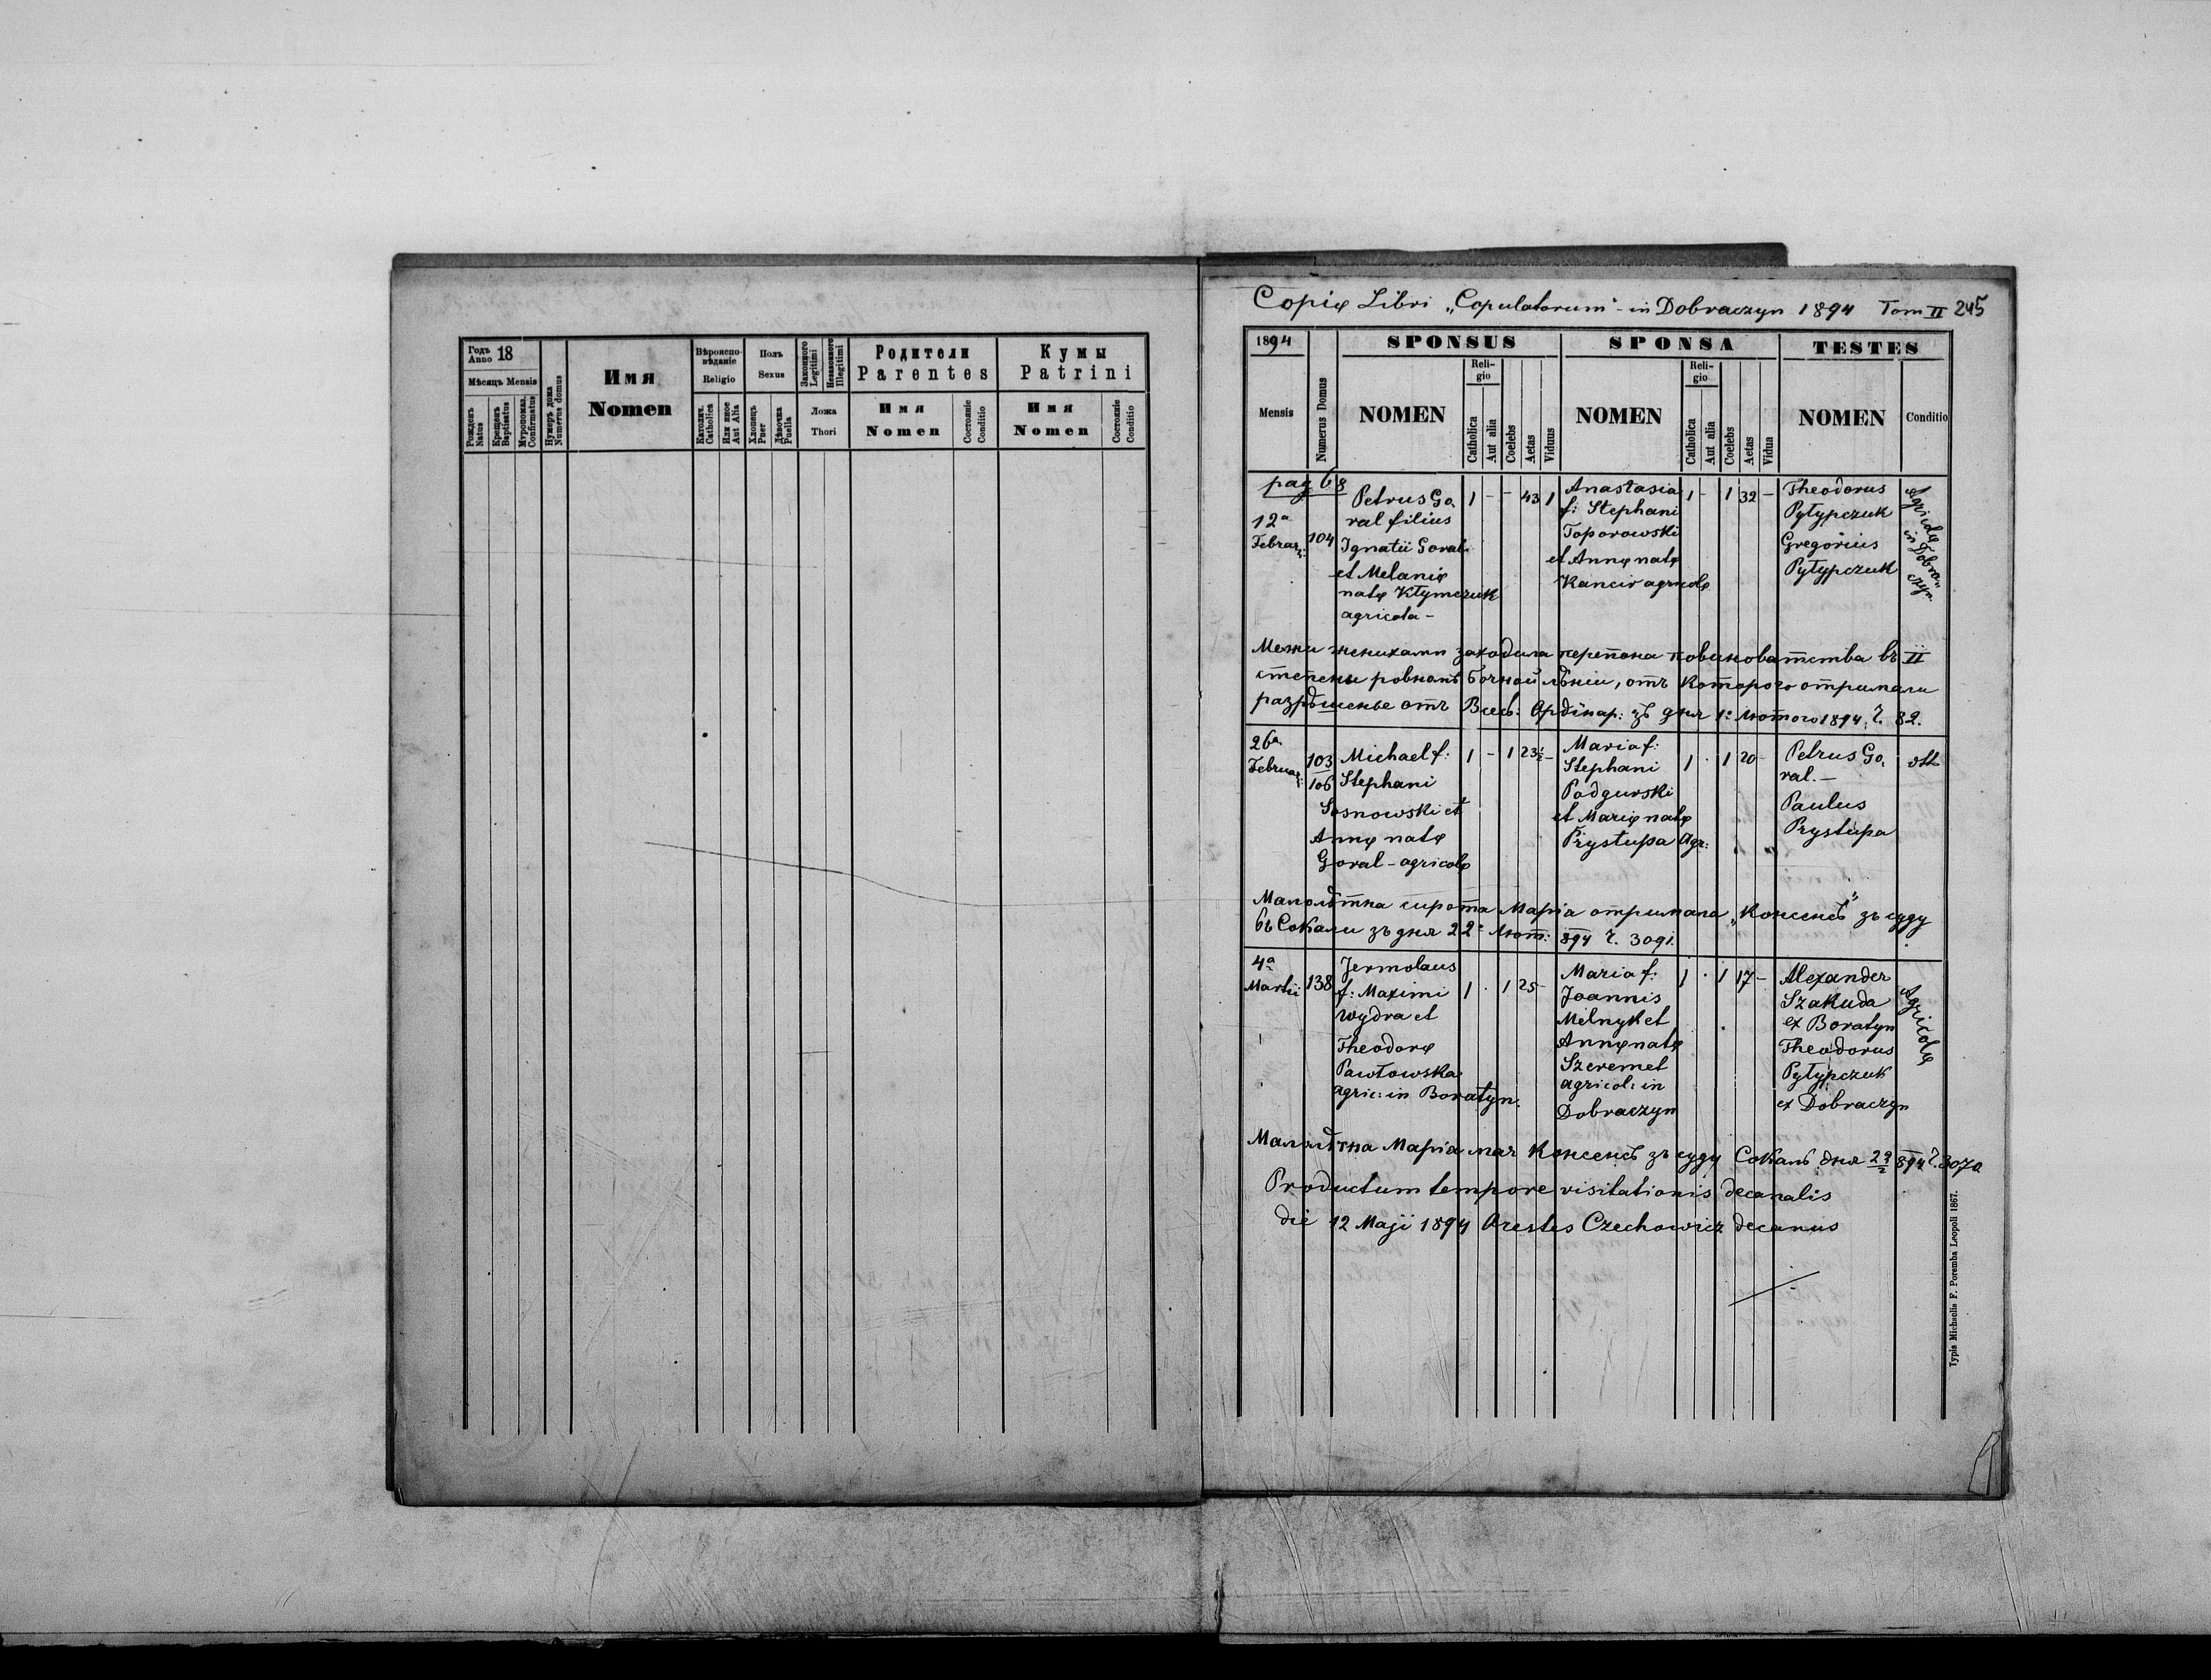 Годъ Anno 18
Мѣсяцъ Mensis
Рожденъ Natus
Крещенъ Baptisatus
Муропомаз. Confirmatus
Нумеръ дома Numerus domus
Имя
Nomen
Вѣроиспо-
вѣданіе
Religio
Католич. Catholica
Или иное Aut Alia
Полъ
Sexus
Хлопецъ Puer
Дѣвочка Puella
Законного Legitimi
Незаконного Illegitimi
Ложа
Thori
Родители
Parentes
Имя
Nomen
Состояніе Conditio
Кумы
Patrini
Имя
Nomen
Состояніе Conditio
Copiæ Libri „Copulatorum" in Dobraczyn 1894 Tom II 245
1894
SPONSUS
SPONSA
TESTES
Mensis
Numerus Domus
NOMEN
Reli-
gio
Catholica
Aut alia
Coelebs
Aetas
Viduus
NOMEN
Reli-
gio
Catholica
Aut alia
Coelebs
Aetas
Vidua
NOMEN
Conditio
pag 68
12a
Februar:
104
Petrus Go.
ral filius
Ignatii Goral
et Melaniæ
natæ Kłymczuk
agricola -
1 - - 43 1
Anastasia
f: Stephani
Toporowski
et Annæ natæ
Kancir agricolæ
1 - 1 32 -
Theodorus
Pyłypczuk
Gregorius
Pyłypczuk
Agricolæ
in Dobra-
czyn
Межи женихами заходила перепона повиноватства въ II
степени ровной бочной лѣніи, отъ которого отримали
разрѣшенье отъ Всесв: Ордінар: зъ дня 1º Лютого 1894. Ч. 82.
26a
Februar:
103
106
Michael f:
Stephani
Sosnowski et
Annæ natæ
Goral - agricolæ
1 - 1 23½ -
Maria f:
Stephani
Podgurski
et Mariæ natæ
Prystupa Agr:
1 . 1 20 -
Petrus Go.
ral. -
Paulus
Prystupa
Малолѣтна сирота Марія отримала „Консенсъ" зъ суду
въ Сокали зъ дня 22º Лют: 894 Ч. 3091.
4a
Martii
138
Jermolaus
f: Maximi
Wydra et
Theodoræ
Pawłowska
agric: in Boratyn.
1 . 1 25 -
Maria f:
Joannis
Melnyk et
Annæ natæ
Szeremet
agricol: in
Dobraczyn
1 . 1 17 -
Alexander
Szakuda
ex Boratyn
Theodorus
Pyłypczuk
ex Dobraczyn
Agricolæ
Малолѣтна Марія мае Консенсъ зъ суду Сокаль дня 894 Ч. 3070
Productum tempore visitationis decanalis
die 12 Maji 1894 Orestes Czechowicz decanus
Typis Michaelis F. Poremba Leopoli 1867.